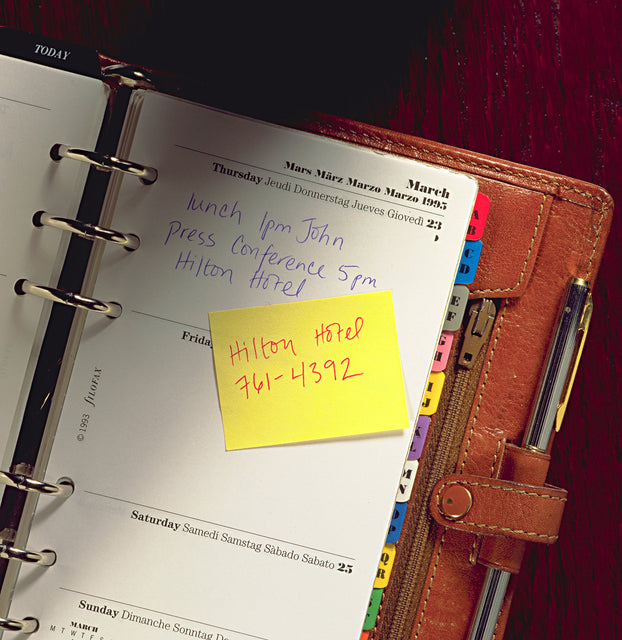 TODAY
March
Mars März Marzo Marzo 1995
Thursday Jeudi Donnerstag Jueves Giovedì 23
lunch 1pm John
Press Conference 5pm
Hilton Hotel
Friday
Hilton Hotel
761-4392
© 1993 fILOFAX
Saturday Samedi Samstag Sàbado Sabato 25
Sunday Dimanche Sonntag
MARCH
M T W T F S
A
B
C
D
E
F
G
H
I
J
K
L
M
N
O
P
Q
R